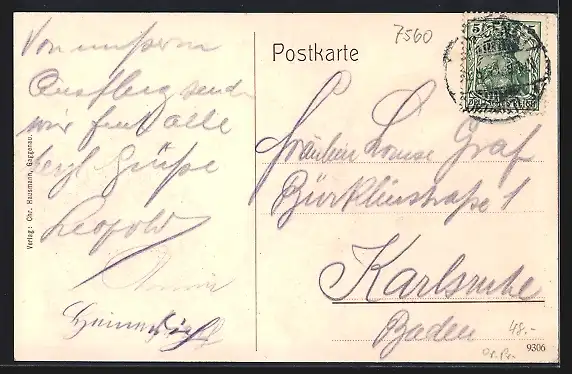 Von unserm
Ausflug senden
wir für alle
herzl Grüße
Leopold
Verlag: Chr. Hausmann, Gaggenau.
Postkarte
7560
Fräulein Louise Graf
Bürklinstraße 1
Karlsruhe
Baden
48.-
9306